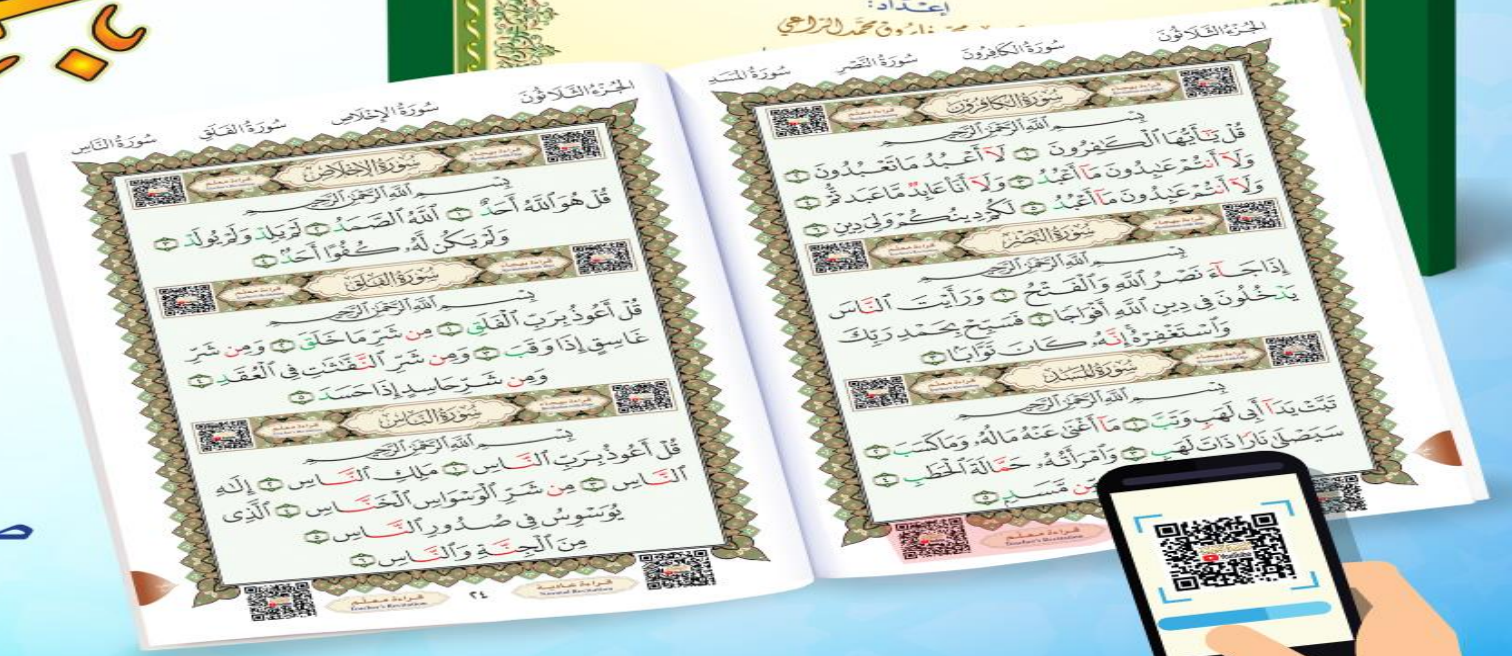 إعداد:
فاروق محمد الراعي
الجزء الثلاثون سورة الكافرون سورة النصر سورة المسد
سُورَةُ الكَافِرُونَ
بِسْمِ ٱللَّهِ ٱلرَّحْمَٰنِ ٱلرَّحِيمِ
قُلْ يَٰٓأَيُّهَا ٱلْكَٰفِرُونَ ١ لَآ أَعْبُدُ مَا تَعْبُدُونَ ٢
وَلَآ أَنتُمْ عَٰبِدُونَ مَآ أَعْبُدُ ٣ وَلَآ أَنَا۠ عَابِدٌ مَّا عَبَدتُّمْ ٤
وَلَآ أَنتُمْ عَٰبِدُونَ مَآ أَعْبُدُ ٥ لَكُمْ دِينُكُمْ وَلِىَ دِينِ ٦
سُورَةُ النَّصْرِ
بِسْمِ ٱللَّهِ ٱلرَّحْمَٰنِ ٱلرَّحِيمِ
إِذَا جَآءَ نَصْرُ ٱللَّهِ وَٱلْفَتْحُ ١ وَرَأَيْتَ ٱلنَّاسَ
يَدْخُلُونَ فِى دِينِ ٱللَّهِ أَفْوَاجًا ٢ فَسَبِّحْ بِحَمْدِ رَبِّكَ
وَٱسْتَغْفِرْهُ إِنَّهُۥ كَانَ تَوَّابًۢا ٣
سُورَةُ المَسَدِ
بِسْمِ ٱللَّهِ ٱلرَّحْمَٰنِ ٱلرَّحِيمِ
تَبَّتْ يَدَآ أَبِى لَهَبٍ وَتَبَّ ١ مَآ أَغْنَىٰ عَنْهُ مَالُهُۥ وَمَا كَسَبَ ٢
سَيَصْلَىٰ نَارًا ذَاتَ لَهَبٍ ٣ وَٱمْرَأَتُهُۥ حَمَّالَةَ ٱلْحَطَبِ ٤
مِّن مَّسَدٍ ٥
قراءة معلم
Teacher's Recitation
الجزء الثلاثون سورة الإخلاص سورة الفلق سورة الناس
سُورَةُ الإِخْلَاصِ
بِسْمِ ٱللَّهِ ٱلرَّحْمَٰنِ ٱلرَّحِيمِ
قُلْ هُوَ ٱللَّهُ أَحَدٌ ١ ٱللَّهُ ٱلصَّمَدُ ٢ لَمْ يَلِدْ وَلَمْ يُولَدْ ٣
وَلَمْ يَكُن لَّهُۥ كُفُوًا أَحَدٌۢ ٤
سُورَةُ الفَلَقِ
بِسْمِ ٱللَّهِ ٱلرَّحْمَٰنِ ٱلرَّحِيمِ
قُلْ أَعُوذُ بِرَبِّ ٱلْفَلَقِ ١ مِن شَرِّ مَا خَلَقَ ٢ وَمِن شَرِّ
غَاسِقٍ إِذَا وَقَبَ ٣ وَمِن شَرِّ ٱلنَّفَّٰثَٰتِ فِى ٱلْعُقَدِ ٤
وَمِن شَرِّ حَاسِدٍ إِذَا حَسَدَ ٥
سُورَةُ النَّاسِ
بِسْمِ ٱللَّهِ ٱلرَّحْمَٰنِ ٱلرَّحِيمِ
قُلْ أَعُوذُ بِرَبِّ ٱلنَّاسِ ١ مَلِكِ ٱلنَّاسِ ٢ إِلَٰهِ
ٱلنَّاسِ ٣ مِن شَرِّ ٱلْوَسْوَاسِ ٱلْخَنَّاسِ ٤ ٱلَّذِى
يُوَسْوِسُ فِى صُدُورِ ٱلنَّاسِ ٥
مِنَ ٱلْجِنَّةِ وَٱلنَّاسِ ٦
قراءة عادية ٢٤ قراءة معلم
Teacher's Recitation
YouTube